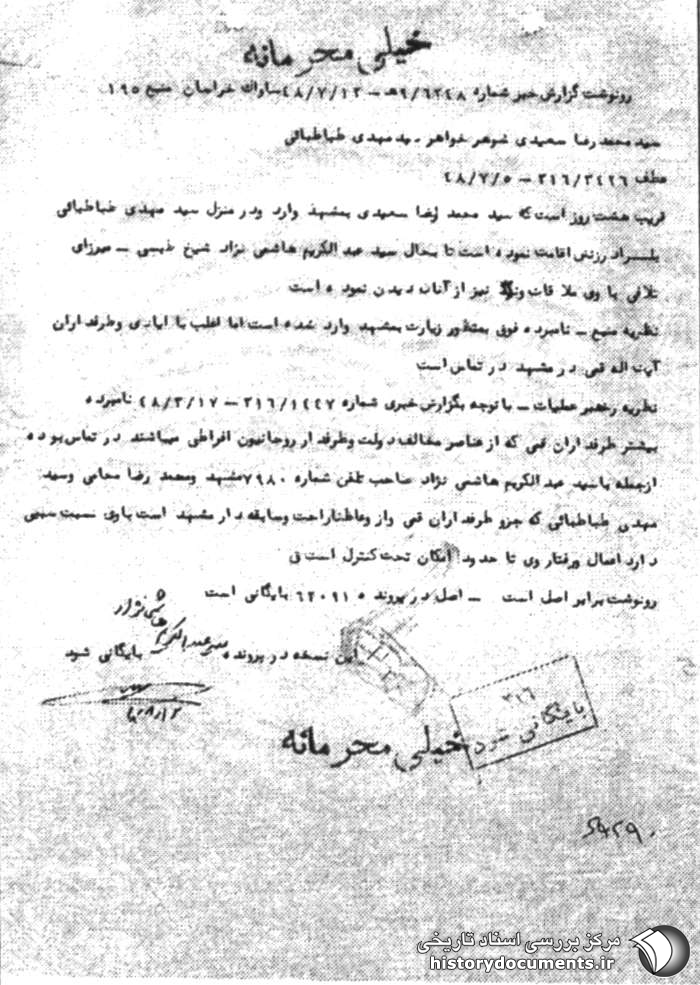 خیلی محرمانه
رونوشت گزارش خبر شماره ۹/۶۲۴۸ه‍ – ۴۸/۷/۱۲ ساواک خراسان منبع ۱۹۵
سید محمد رضا سعیدی شوهر خواهر سید مهدی طباطبائی
عطف ۳۱۶/۳۴۲۶ – ۴۸/۷/۵
قریب هشت روز است که سید محمد رضا سعیدی بمشهد وارد ودر منزل سید مهدی طباطبائی
اقامت نموده است تا بحال سید عبد الکریم هاشمی نژاد شیخ طبسی – میرزای
با وی ملاقات نیز از آنان دیدن نموده است
نظریه منبع – نامبرده فوق بمنظور زیارت بمشهد وارد شده است اما اغلب با ایادی وطرفداران
آیت اله قمی در مشهد در تماس است
نظریه رهبر عملیات – با توجه بگزارش خبری شماره ۳۱۶/۱۴۴۷ – ۴۸/۳/۱۷ نامبرده
بیشتر طرفداران قمی که از عناصر مخالف دولت وطرفدار روحانیون افراطی میباشند در تماس بوده
ازجمله باسید عبد الکریم هاشمی نژاد صاحب تلفن شماره ۷۹۸۰ مشهد ومحمد رضا محامی وسید
مهدی طباطبائی که جزو طرفداران قمی واز وعاظ ناراحت وسابقه دار مشهد است باوی نسبت سببی
دارد اعمال ورفتار وی تا حدود امکان تحت کنترل است ق
رونوشت برابر اصل است – اصل در پرونده ۶۲۰۹۱ بایگانی است
این نسخه در پرونده سید عبدالکریم هاشمی نژاد بایگانی شود
۳۱۶
بایگانی شود
خیلی محرمانه
مرکز بررسی اسناد تاریخی
historydocuments.ir